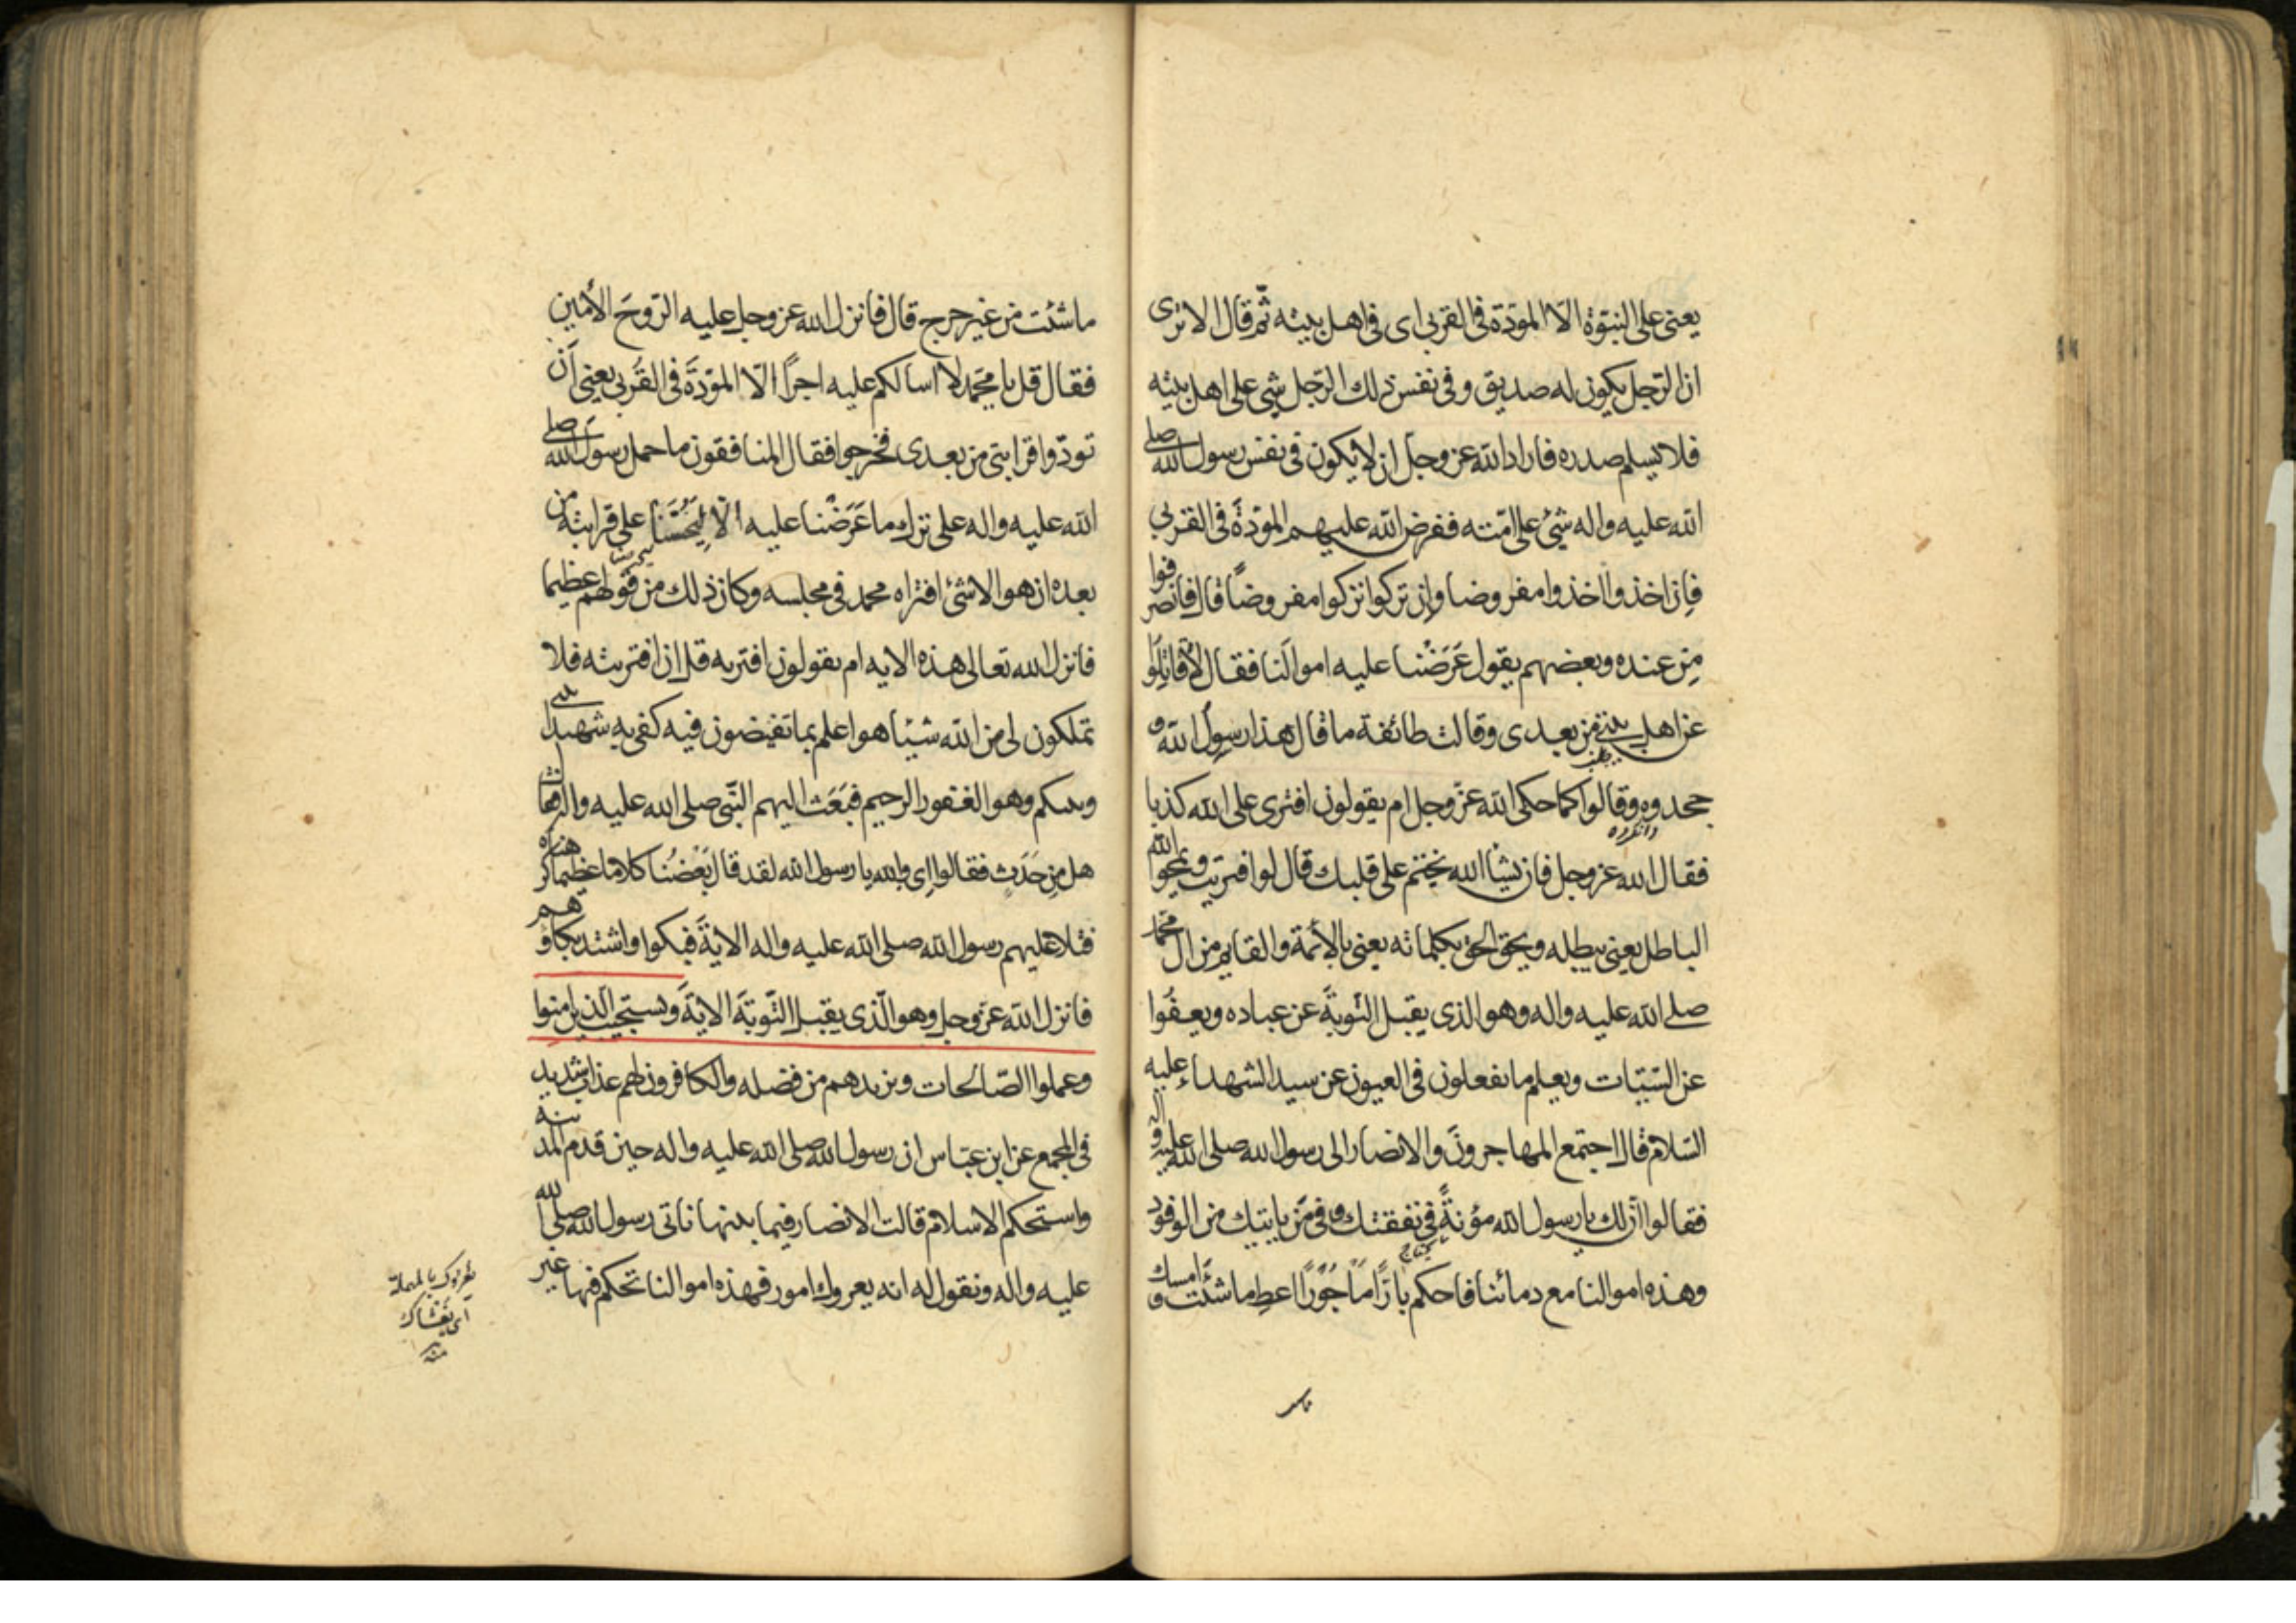 يعنى على النبوّة الّا المودّة فى القربى اى فى اهل بيته ثمّ قال الا ترى
ان الرّجل يكون له صديق و فى نفس ذلك الرّجل شئ على اهل بيته
فلا يسلم صدره فاراد الله عز وجل ان لا يكون فى نفس رسول الله صلى
الله عليه واله شئ على امّته ففرض الله عليهم المودّة فى القربى
فان اخذوا اخذوا مفروضا وان تركوا تركوا مفروضاً قال فانصرفوا
من عنده وبعضهم يقول عَرَضْنا عليه اموالَنا فقال لا قاتِلوا
عن اهل بيتى من بعدى وقالت طائفة ما قال هذا رسول الله و
جحدوه وقالوا كما حكى الله عزّ وجل ام يقولون افترى على الله كذبا
فقال الله عز وجل فان يشأ الله يختم على قلبك قال لو افتريت ويمحوا الله
الباطل يعنى يبطله ويحق الحق بكلماته يعنى بالائمة والقايم من ال محمّد
صلى الله عليه واله وهو الذى يقبل التّوبةَ عن عباده ويعفُوا
عن السّيّئات ويعلم ما تفعلون فى العيون عن سيد الشهداء عليه
السّلام قال اجتمع المهاجرون والانصار الى رسول الله صلى الله عليه واله
فقالوا ان لك يا رسول الله مؤنةً فى نفقتك وفى مَن ياتيك من الوفود
وهذه اموالنا مع دمائنا فاحكم بارّاً ماجُوراً اعط ما شئت وامسك
ما شئت من غير حرج قال فانزل الله عز وجل عليه الرّوحَ الأمين
فقال قل يا محمّد لا اسالكم عليه اجراً الّا المودّةَ فى القُربى يعنى اَن
تودّوا قرابتى من بعدى فخرجوا فقال المنافقون ما حمل رسول الله صلى
الله عليه واله على ترك ما عَرَضْنا عليه الّا لِيَحُثَّنا على قرابته من
بعده ان هو الا شئ افتراه محمد فى مجلسه وكان ذلك من قولهم عظيما
فانزل الله تعالى هذه الايه ام يقولون افتريه قل ان افتريته فلا
تملكون لى من الله شيئا هو اعلم بما تفيضون فيه كفى به شهيدا بينى
وبينكم وهو الغفور الرحيم فبَعَث اليهم النّبى صلى الله عليه واله فقال
هل مِن حَدَثٍ فقالوا اِى والله يا رسول الله لقد قال بَعْضُنا كلاما عظيما كرهناه
فتلا عليهم رسول الله صلى الله عليه واله الايةَ فبكوا واشتد بكاؤهم
فانزل الله عزّ وجل وهو الّذى يقبل التّوبَةَ الايةَ ويستجيب الّذين امنوا
وعملوا الصّالحات ويزيدهم من فضله والكافرون لهم عذاب شديد
فى المجمع عن ابن عبّاس ان رسول الله صلى الله عليه واله حين قدم المدينه
واستحكم الاسلام قالت الانصار فيما بينها ناتى رسول الله صلى الله
عليه واله ونقول له انه يعروك امور فهذه اموالنا تحكم فيها غير
يعروك بالمهملة
اى يغشاك
منه